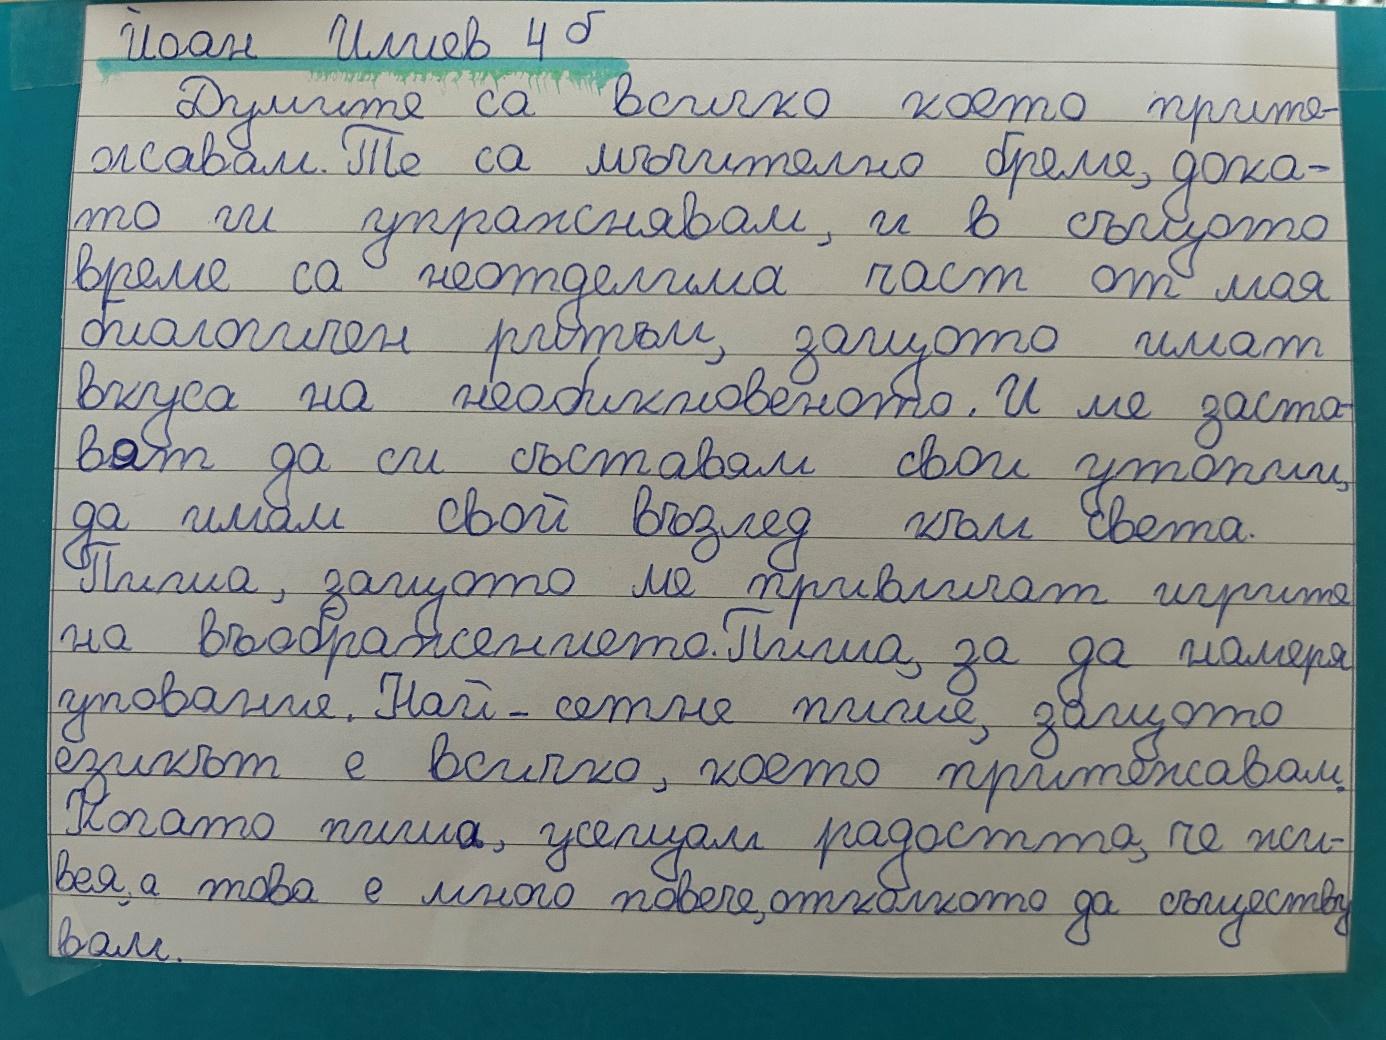 Йоан Илиев 4 б
Думите са всичко което прите-
жавам. Те са мъчително бреме, дока-
то ги упражнявам, и в същото
време са неотделима част от мая
биологичен ритъм, защото имат
вкуса на необикновеното. И ме заста-
вят да си съставам свои утопии,
да имам свой възглед към света.
Пиша, защото ме привличат игрите
на въображението. Пиша, за да намеря
упование. Най-сетне пише, защото
езикът е всичко, което притежавам.
Когато пиша, усещам радостта, че жи-
вея, а това е много повече, отколкото да съществу
вам.